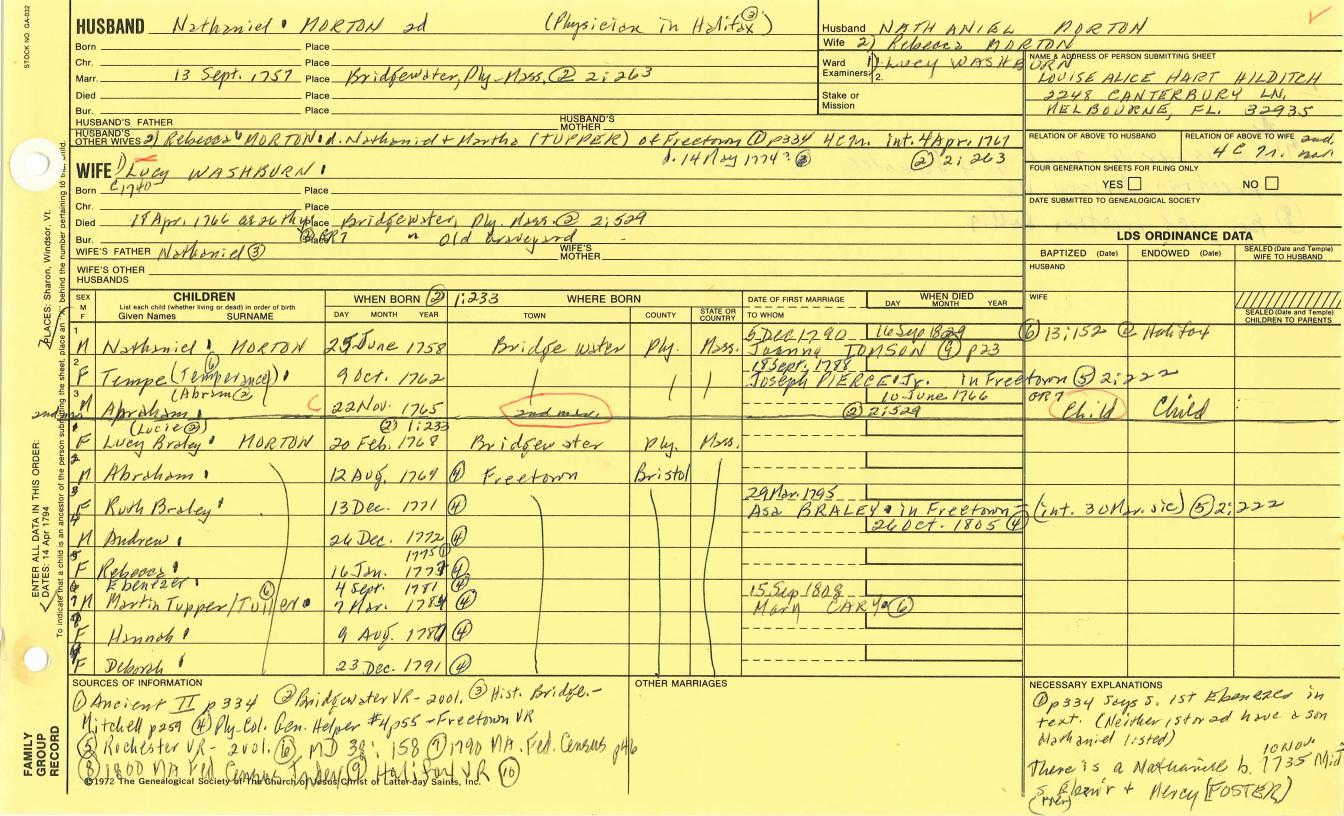 STOCK NO. GA-032
HUSBAND Nathaniel MORTON 2d (Physician in Halifax ③)
Husband NATHANIEL MORTON
Wife 2) Rebecca MORTON
1) Lucy WASHBURN
Ward
Examiners: 2.
Stake or
Mission
Born Place
Chr. Place
Marr. 13 Sept. 1757 Place Bridgewater, Ply-Mass. ② 2:263
Died Place
Bur. Place
NAME & ADDRESS OF PERSON SUBMITTING SHEET
LOUISE ALICE HART HILDITCH
2248 CANTERBURY LN.
MELBOURNE, FL. 32935
HUSBAND'S FATHER HUSBAND'S MOTHER
HUSBAND'S OTHER WIVES 2) Rebecca MORTON d. Nathaniel + Martha (TUPPER) of Freetown ① p334 4C7r. int. 4 Apr. 1767
d. 14 May 1774? ② 2:263
RELATION OF ABOVE TO HUSBAND
RELATION OF ABOVE TO WIFE 2nd.
4 C 7r.
WIFE 1) Lucy WASHBURN
Born c1740 Place
Chr. Place
Died 18 Apr. 1766 Place Bridgewater, Ply. Mass. ② 2:529
Bur. Place " Old Graveyard
WIFE'S FATHER Nathaniel ③ WIFE'S MOTHER
WIFE'S OTHER HUSBANDS
FOUR GENERATION SHEETS FOR FILING ONLY
YES NO
DATE SUBMITTED TO GENEALOGICAL SOCIETY
LDS ORDINANCE DATA
BAPTIZED (Date) ENDOWED (Date) SEALED (Date and Temple) WIFE TO HUSBAND
HUSBAND
WIFE
SEALED (Date and Temple) CHILDREN TO PARENTS
SEX M F
CHILDREN
List each child (whether living or dead) in order of birth
Given Names SURNAME
WHEN BORN ② 1:233
DAY MONTH YEAR
WHERE BORN
TOWN COUNTY STATE OR COUNTRY
DATE OF FIRST MARRIAGE
TO WHOM
WHEN DIED
DAY MONTH YEAR
1 M Nathaniel MORTON 25 June 1758 Bridgewater Ply. Mass. 5 Dec 1790 16 Sep 1829 ⑥ 13:152 Halifax
Joanna TOMSON ⑨ p23
2 F Tempe (Temperance) ⑥ 9 Oct. 1762 18 Sept. 1788
Joseph PIERCE Jr. in Freetown ⑤ 2:222
3 M (Abram ②) Abraham 22 Nov. 1765 2nd mar. 10 June 1766 GR7 Child Child
② 2:529
1 F (Lucie ②) Lucy Braley MORTON ② 1:233 20 Feb. 1768 Bridgewater Ply. Mass.
2 M Abraham 12 Aug. 1769 ④ Freetown Bristol
3 F Ruth Braley 13 Dec. 1771 ④ 29 Mar. 1795
Asa BRALEY in Freetown (int. 30 Mar. sic) ⑤ 2:222
26 Oct. 1805 ④
4 M Andrew 26 Dec. 1772 ④
5 F Rebecca 1775 ① 16 Jan. 1777 ④
6 Ebenezer 4 Sept. 1781 ④
7 M Martin Tupper ⑥ 7 Mar. 1784 ④ 15 Sep 1808
Mary CARY ⑥
8 F Hannah 9 Aug. 1787 ④
9 F Deborah 23 Dec. 1791 ④
SOURCES OF INFORMATION
① Ancient II p334 ② Bridgewater VR - 2 vol. ③ Hist. Bridge. -
Mitchell p259 ④ Ply. Col. Gen. Helper #4 p55 - Freetown VR
⑤ Rochester VR - 2 vol. ⑥ MD 38: 158 ⑦ 1790 MA. Fed. Census p46
⑧ 1800 MA Fed Census Index ⑨ Halifax VR ⑩
©1972 The Genealogical Society of The Church of Jesus Christ of Latter-day Saints, Inc.
OTHER MARRIAGES
NECESSARY EXPLANATIONS
① p334 says s. 1st Ebenezer in
text. (Neither 1st or 2d have a son
Nathaniel listed)
There is a Nathaniel b. 10 Nov 1735 Mid
s. Eben'r + Mercy [FOSTER]
ENTER ALL DATA IN THIS ORDER:
DATES: 14 Apr 1794
PLACES: Sharon, Windsor, Vt.
FAMILY
GROUP
RECORD